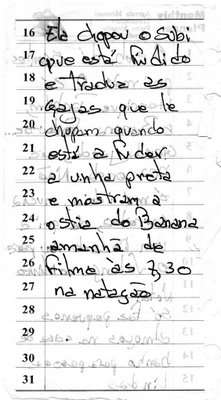 16 Ele chopou o subi
17 que está fudido
18 e tradua as
19 gajas que le
20 chupam quando
21 está a fuder
22 a unha preta
23 e mostram a
24 ostia do Banana
25 amanhã de
26 filmo às 8,30
27 na natação
28
29
30
31